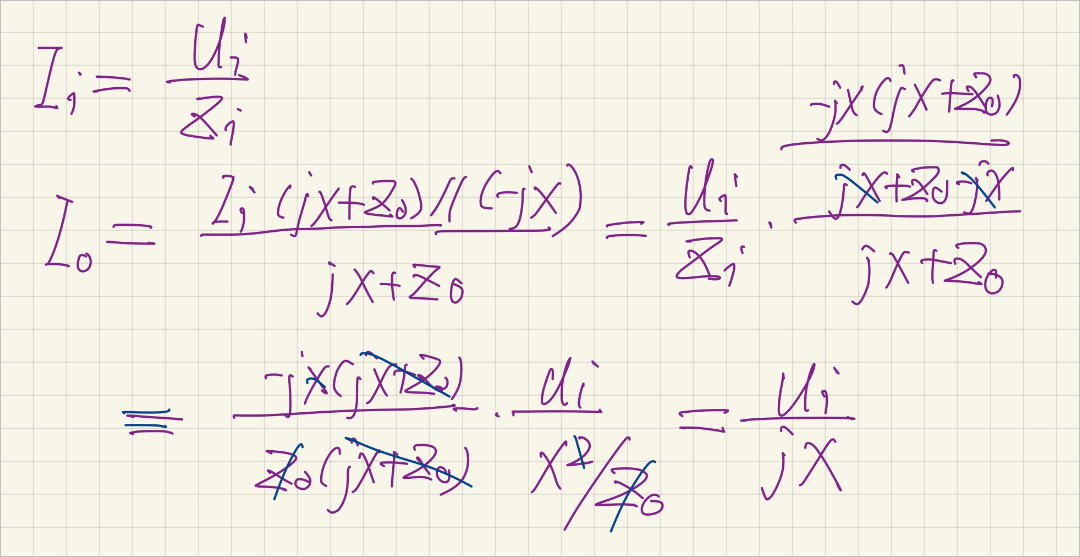 I_i = U_i / Z_i
I_o = I_i (jX+Z_0)//(-jX) / (jX+Z_0) = U_i / Z_i · (-jX(jX+Z_0) / (jX+Z_0-jX)) / (jX+Z_0)
= -jX(jX+Z_0) / Z_0(jX+Z_0) · U_i / (X^2/Z_0) = U_i / jX